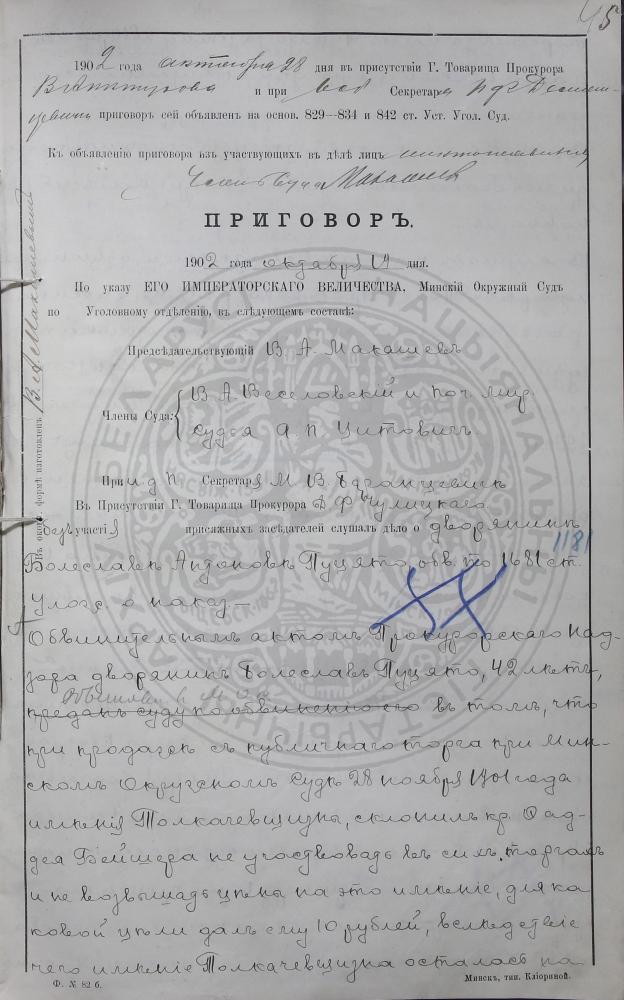 45
1902 года октября 28 дня в присутствіи Г. Товарища Прокурора
и при Секретаря
приговор сей объявлен на основ. 829—834 и 842 ст. Уст. Угол. Суд.
Къ объявленію приговора изъ участвующихъ въ дѣлѣ лицъ
Членъ Суда Макашевъ
ПРИГОВОРЪ.
1902 года октября 14 дня.
По указу ЕГО ИМПЕРАТОРСКАГО ВЕЛИЧЕСТВА, Минскій Окружный Судъ
по Уголовному отдѣленію, въ слѣдующемъ составѣ:
Предсѣдательствующій В. А. Макашевъ
Члены Суда: В. А. Веселовскій и поч. мир.
судья А. П. Цитовичъ
При и д п. Секретаря М. В.
Въ Присутствіи Г. Товарища Прокурора Ф. Чулицкаго
безъ участія присяжныхъ засѣдателей слушалъ дѣло о дворянинѣ
1181
Болеславѣ Антоновѣ Пуцято, обв. по 1681 ст.
Улож. о наказ.—
Обвинительнымъ актомъ Прокурорскаго над-
зора дворянинъ Болеславъ Пуцято, 42 лѣтъ,
преданъ суду по обвиненію его въ томъ, что
при продажѣ съ публичнаго торга при Мин-
скомъ Окружномъ Судѣ 28 ноября 1901 года
имѣнія Толкачевщизны, склонилъ кр. Фад-
дея Бейшера не участвовать въ сихъ торгахъ
и не возвышать цѣны на это имѣніе, для ка-
ковой цѣли далъ ему 10 рублей, вслѣдствіе
чего имѣніе Толкачевщизна осталась за
Ф. № 82 б. Минскъ, тип. Кліориной.
Въ оконч. формѣ изготовленъ В. А. Макашевскій